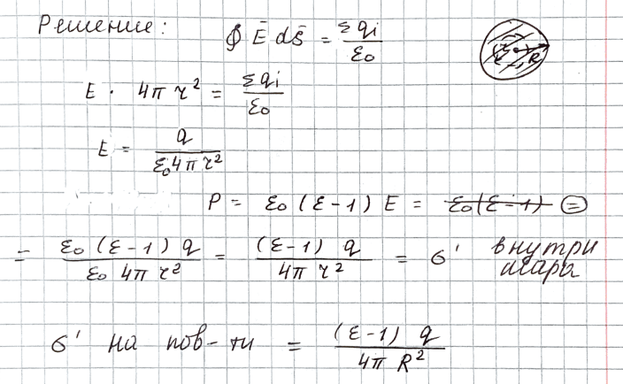 Решение: ∮ Ē ds̄ = Σqi/ε0
R
E · 4π r² = Σqi/ε0
E = q/(ε0 4π r²)
P = ε0 (ε-1) E = ε0(ε-1) =
= ε0 (ε-1) q/(ε0 4π r²) = (ε-1) q/(4π r²) = σ' внутри шара
σ' на пов-ти = (ε-1) q/(4π R²)